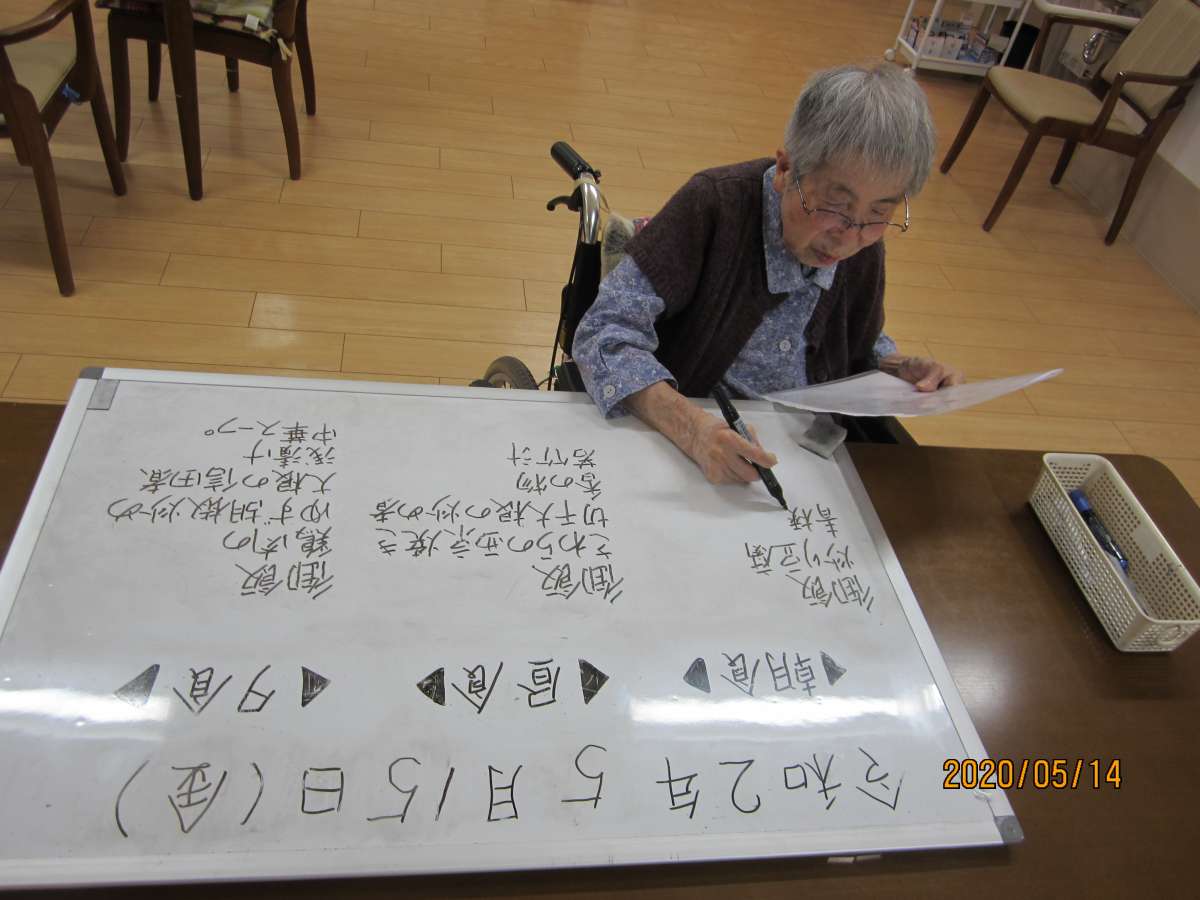 令和2年 5月15日(金)
▶朝食◀
御飯
炒り豆腐
青梗
▶昼食◀
御飯
さわらの西京焼き
切干大根の炒め煮
香の物
若竹汁
▶夕食◀
御飯
鶏肉の
ゆず胡椒炒め
大根の信田煮
浅漬け
中華スープ
2020/05/14